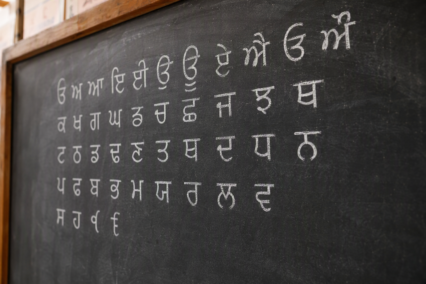 ਓ ਅ ਆ ਇ ਈ ਉ ਊ ਏ ਐ ਓ ਔ
ਕ ਖ ਗ ਘ ਙ ਚ ਛ ਜ ਝ ਥ
ਟ ਠ ਡ ਢ ਣ ਤ ਥ ਦ ਧ ਨ
ਪ ਫ ਬ ਭ ਮ ਯ ਰ ਲ ਵ
ਸ ਹ